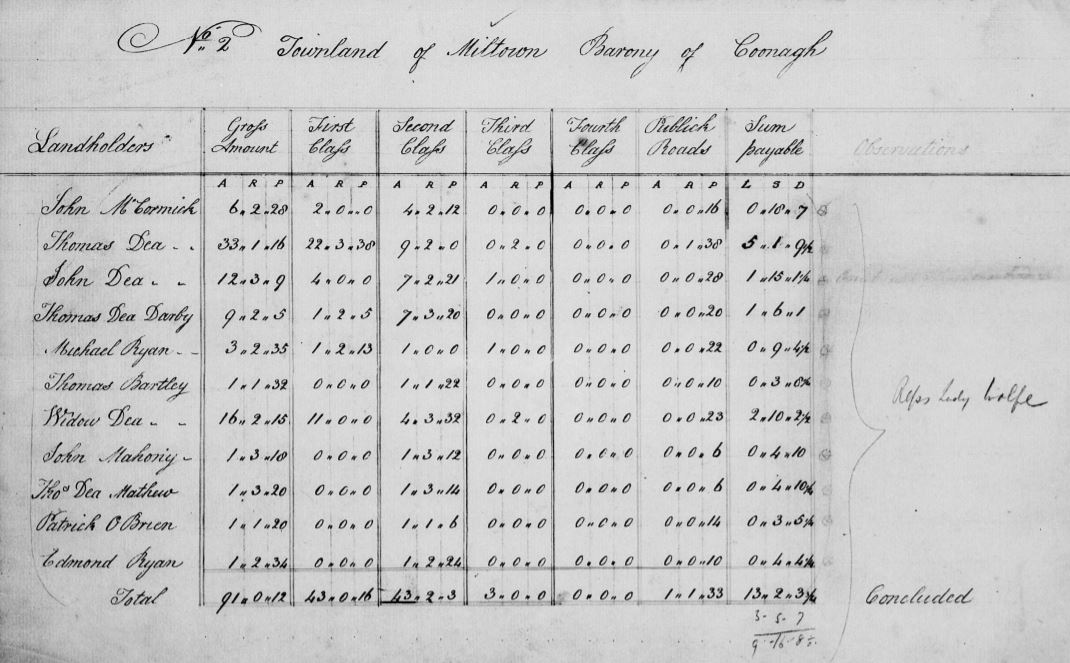 No. 2 Townland of Miltown Barony of Coonagh
Landholders Gross Amount First Class Second Class Third Class Fourth Class Publick Roads Sum payable Observations
A R P A R P A R P A R P A R P A R P L S D
John McCormick 6 " 2 " 28 2 " 0 " 0 4 " 2 " 12 0 " 0 " 0 0 " 0 " 0 0 " 0 " 16 0 " 18 " 7
Thomas Dea " " 33 " 1 " 16 22 " 3 " 38 9 " 2 " 0 0 " 2 " 0 0 " 0 " 0 0 " 1 " 38 5 " 1 " 9½
John Dea " " 12 " 3 " 9 4 " 0 " 0 7 " 2 " 21 1 " 0 " 0 0 " 0 " 0 0 " 0 " 28 1 " 15 " 1¼
Thomas Dea Darby 9 " 2 " 5 1 " 2 " 5 7 " 3 " 20 0 " 0 " 0 0 " 0 " 0 0 " 0 " 20 1 " 6 " 1
Michael Ryan - - 3 " 2 " 35 1 " 2 " 13 1 " 0 " 0 1 " 0 " 0 0 " 0 " 0 0 " 0 " 22 0 " 9 " 4½
Thomas Bartley 1 " 1 " 32 0 " 0 " 0 1 " 1 " 22 0 " 0 " 0 0 " 0 " 0 0 " 0 " 10 0 " 3 "
Widow Dea " " 16 " 2 " 15 11 " 0 " 0 4 " 3 " 32 0 " 2 " 0 0 " 0 " 0 0 " 0 " 23 2 " 10 " 2½
Lady Wolfe
John Mahony - 1 " 3 " 18 0 " 0 " 0 1 " 3 " 12 0 " 0 " 0 0 " 0 " 0 0 " 0 " 6 0 " 4 " 10
Thos Dea Mathew 1 " 3 " 20 0 " 0 " 0 1 " 3 " 14 0 " 0 " 0 0 " 0 " 0 0 " 0 " 6 0 " 4 " 10¼
Patrick O Brien 1 " 1 " 20 0 " 0 " 0 1 " 1 " 6 0 " 0 " 0 0 " 0 " 0 0 " 0 " 14 0 " 3 " 5¼
Edmond Ryan 1 " 2 " 34 0 " 0 " 0 1 " 2 " 24 0 " 0 " 0 0 " 0 " 0 0 " 0 " 10 0 " 4 " 4¼
Total 91 " 0 " 12 43 " 0 " 16 43 " 2 " 3 3 " 0 " 0 0 " 0 " 0 1 " 1 " 33 13 " 2 " 3¼ Concluded
3 - 5 - 7
9 - 16 -